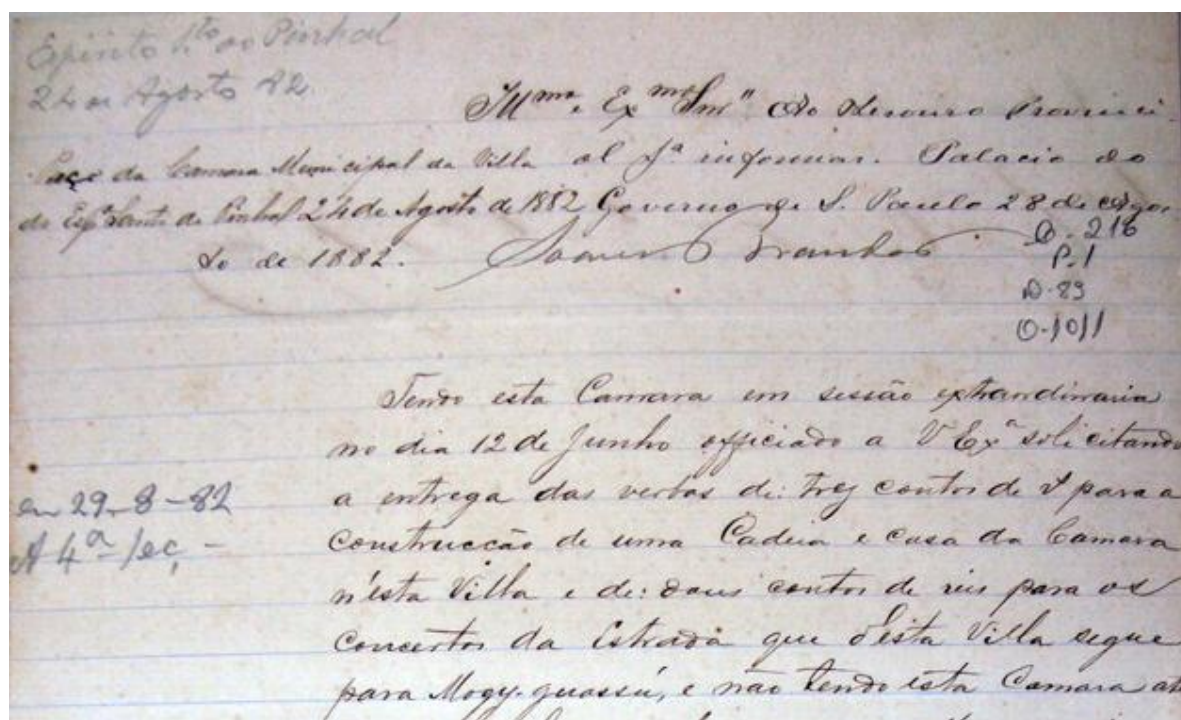 Espirito S.to do Pinhal
24 de Agosto 82
Illmo. Exmo Snr.
Ao Thesouro Provinci-
Paço da Camara Municipal da Villa
al pa informar. Palacio do
do Espo Santo do Pinhal 24 de Agosto de 1882
Governo de S. Paulo 28 de Agos-
to de 1882.
D-216
P.1
D-89
O-1011
Tendo esta Camara em sessão extrandinaria
no dia 12 de Junho officiado a V Exa solicitando
a entrega das verbas de: trez contos de rs para a
construcção de uma Cadeia e casa da Camara
n'esta Villa e de: dous contos de reis para os
concertos da Estrada que d'esta Villa segue
para Mogy-guassú, e não tendo esta Camara at
em 29-8-82
A 4a Sec,-